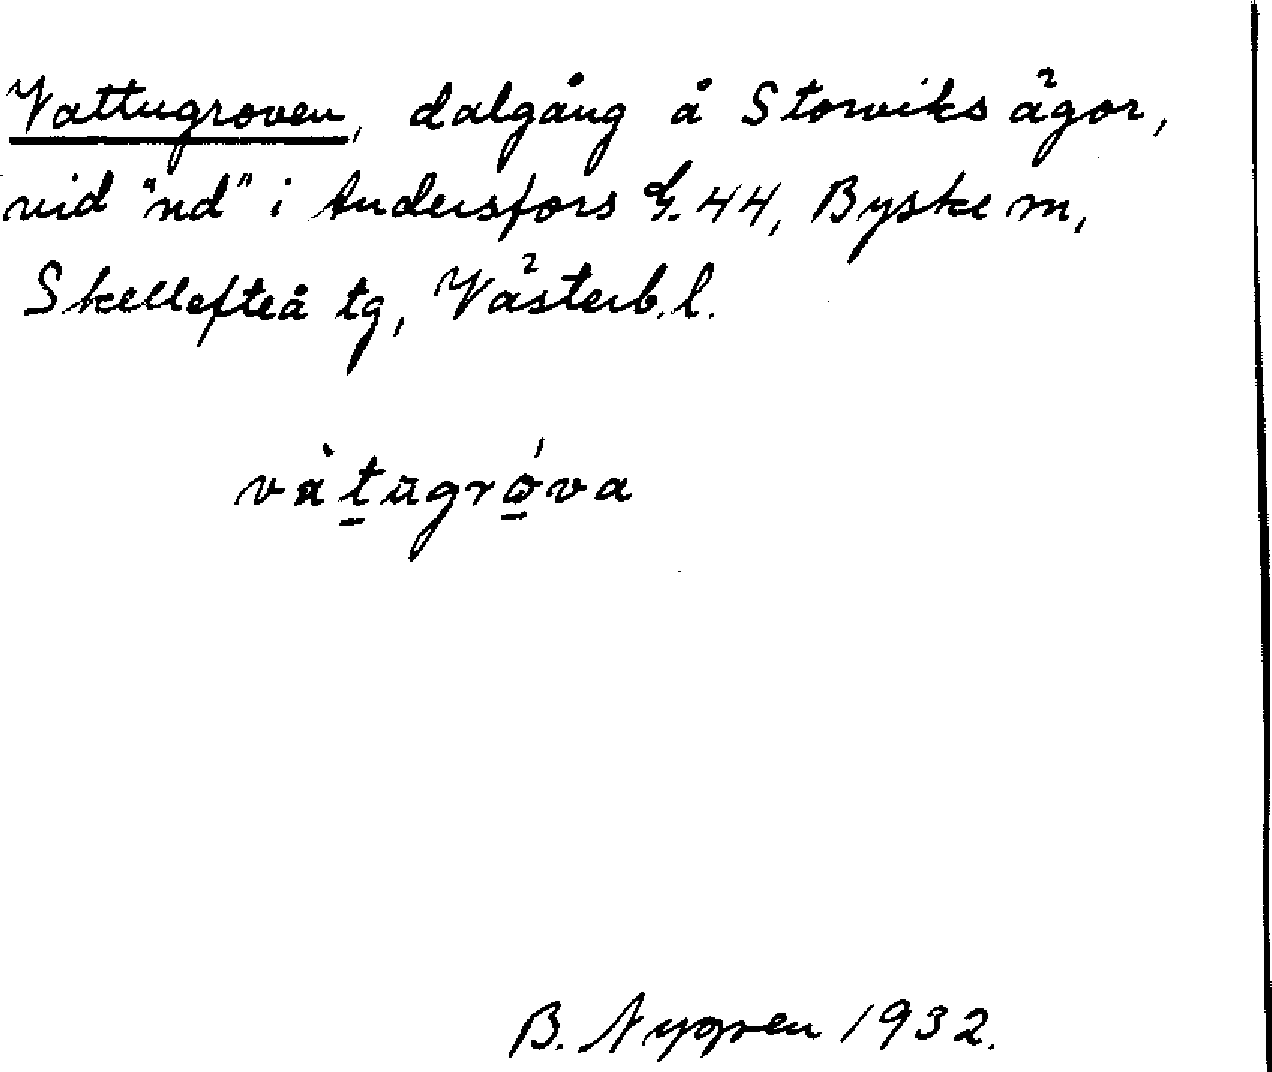 Vattugroven, dalgång å Storviks ägor,
vid "nd" i Andersfors G. 44, Byske m,
Skellefteå tg, Västerb. l.
vàtugrǿva
B. Nygren 1932.